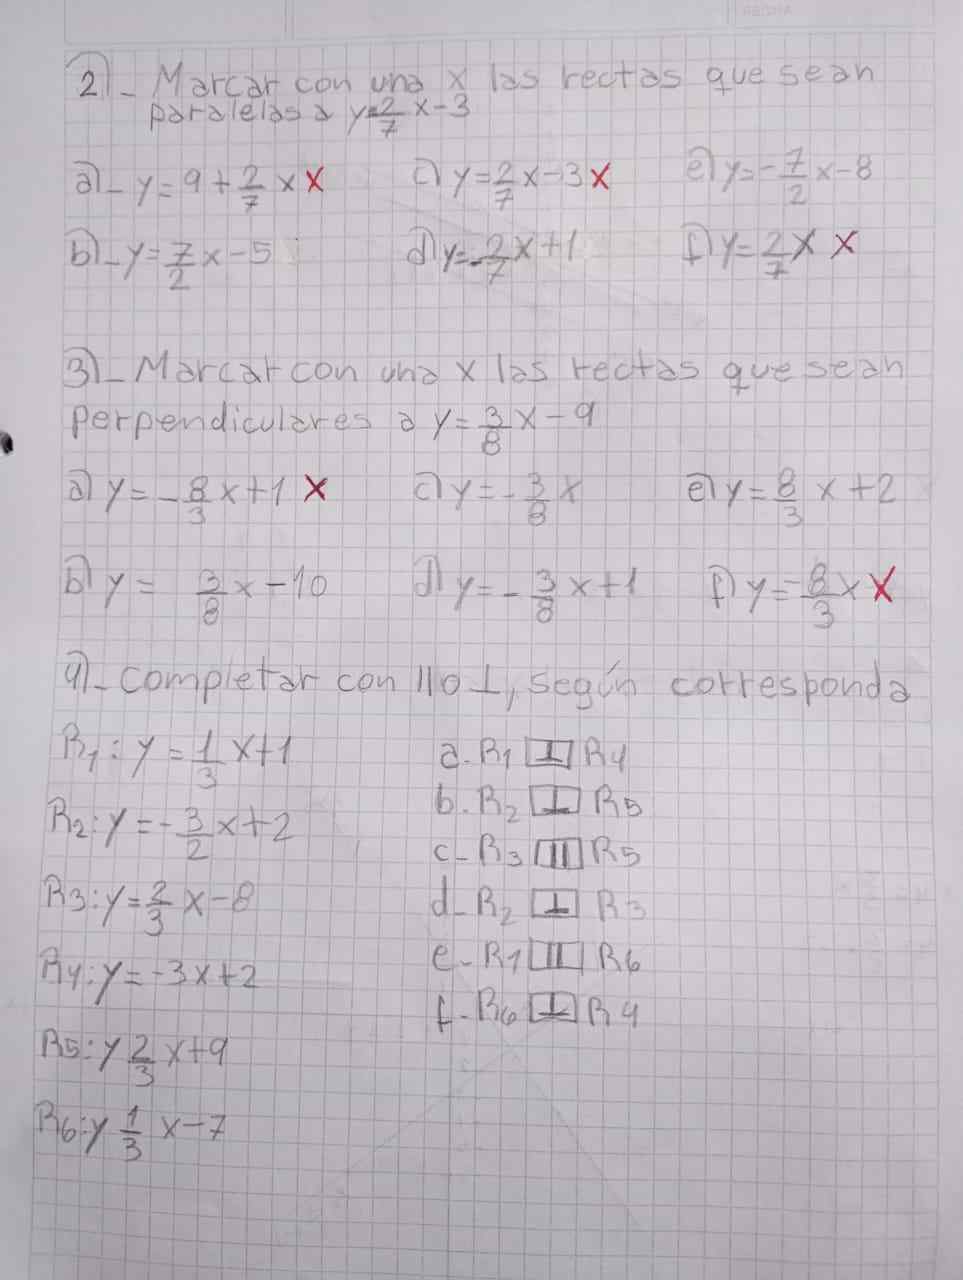 FECHA
2)- Marcar con una x las rectas que sean
paralelas a y=2/7 x-3
a)- y=9+2/7 x X
c) y=2/7 x-3 X
e) y=-7/2 x-8
b)- y=7/2 x-5
d) y=-2/7 x+1
f) y=2/7 x X
3)- Marcar con una x las rectas que sean
perpendiculares a y=3/8 x-9
a) y=-8/3 x+1 X
c) y=-3/8 x
e) y=8/3 x+2
b) y= 3/8 x-10
d) y=-3/8 x+1
f) y=-8/3 x X
4)- Completar con || o ⊥, según corresponda
R1: y=1/3 x+1
R2: y=-3/2 x+2
R3: y=2/3 x-8
R4: y=-3x+2
R5: y 2/3 x+9
R6: y 1/3 x-7
a. R1 ⊥ R4
b. R2 ⊥ R5
c- R3 || R5
d- R2 ⊥ R3
e- R1 || R6
f- R6 ⊥ R4